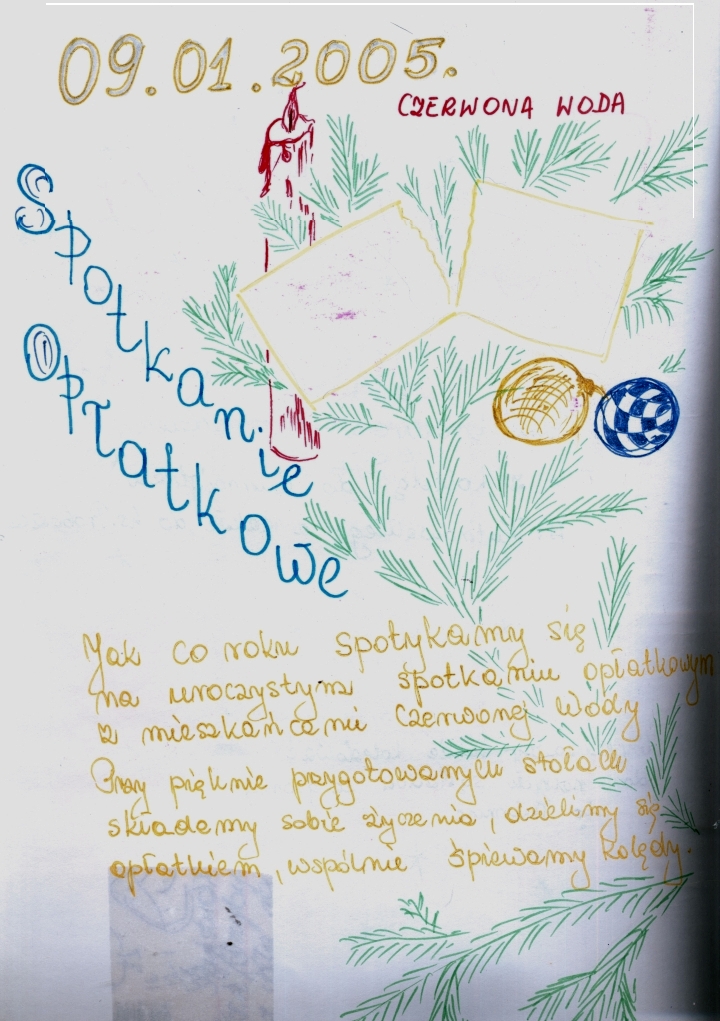 09.01.2005.
CZERWONA WODA
Spotkanie
Opłatkowe
Jak co roku spotykamy się
na uroczystym spotkaniu opłatkowym
z mieszkańcami Czerwonej Wody
Przy pięknie przygotowanych stołach
składamy sobie życzenia, dzielimy się
opłatkiem, wspólnie śpiewamy kolędy.